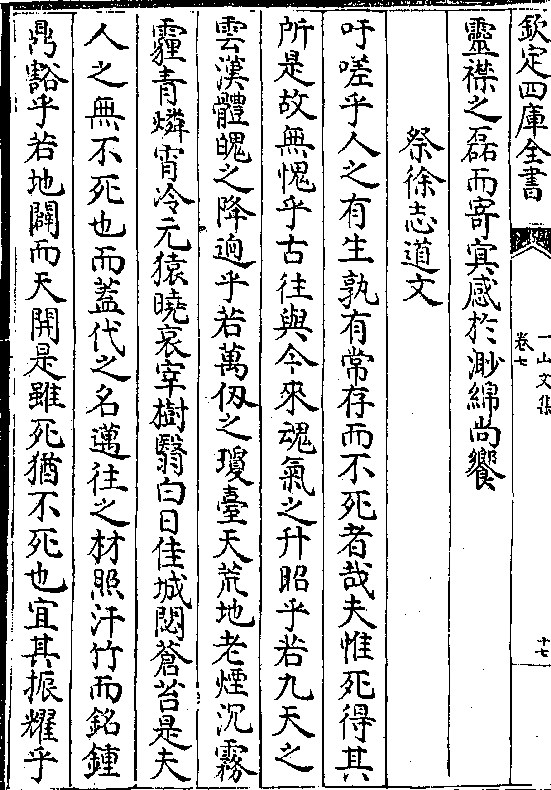 欽定四庫全書
一山文集
卷七
十七
靈襟之磊而寄寘感於渺綿尚饗
祭徐志道文
吁嗟乎人之有生孰有常存而不死者哉夫惟死得其
所是故無愧乎古往與今來魂氣之升昭乎若九天之
雲漢體魄之降逈乎若萬仭之瓊臺天荒地老煙沉霧
霾青燐宵冷元猿曉哀宰樹翳白日佳城閟蒼苔是夫
人之無不死也而蓋代之名邁往之材照汗竹而銘鍾
鼎豁乎若地闢而天開是雖死猶不死也宜其振耀乎